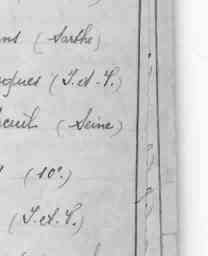 ns (Sarthe)
ques (I.et.V.)
cueil (Seine)
(10e)
(I.et.V.)